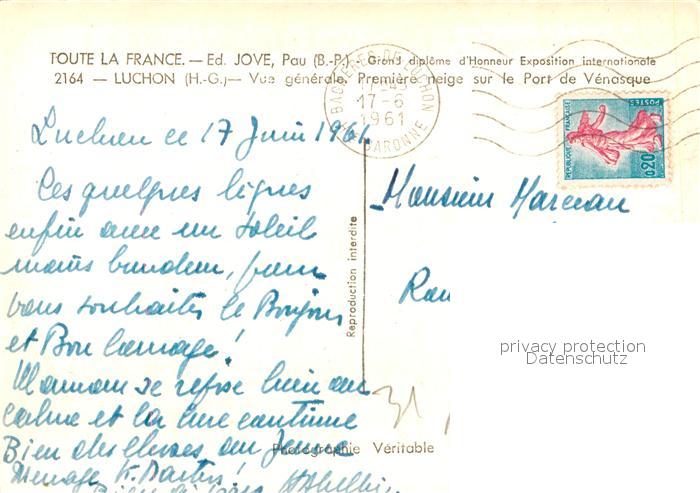 TOUTE LA FRANCE. — Ed. JOVE, Pau (B.-P.) - Grand diplôme d'Honneur Exposition internationale
2164 — LUCHON (H.-G.) — Vue générale. Première neige sur le Port de Vénasque
BAGNERES DE LUCHON
17-6
1961
GARONNE
REPUBLIQUE FRANÇAISE
POSTES
0,20
Luchon ce 17 Juin 1961
Ces quelques lignes
enfin avec un soleil
moins, pour
vous souhaiter le Bonjour
et Bon!
Maman se repose bien au
calme et la cure continue
Bien des choses au Jeune
Menage
Reproduction interdite
Monsieur Marceau
privacy protection
Datenschutz
31
Photographie Véritable